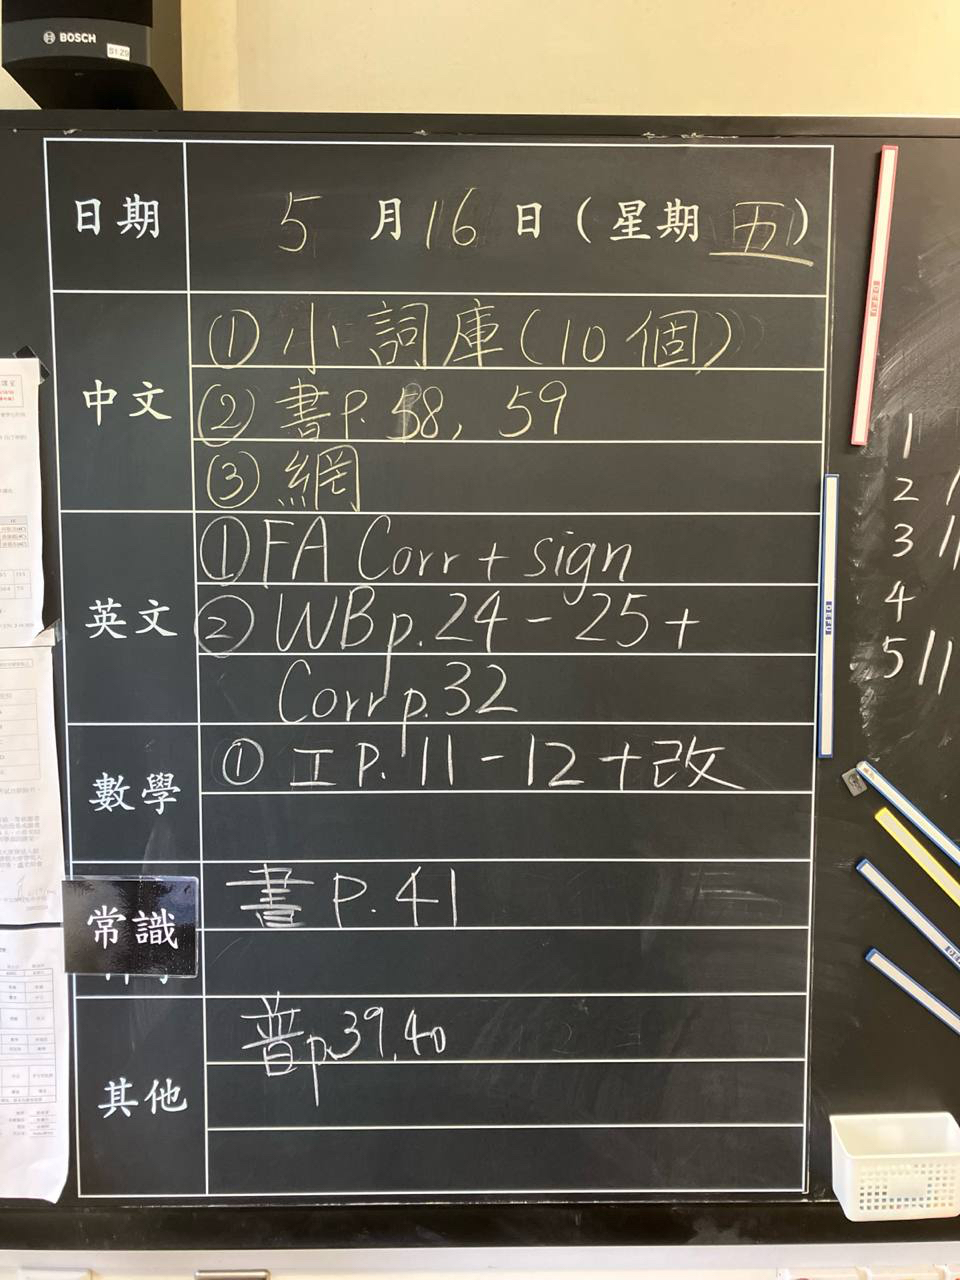 BOSCH
日期 5 月 16 日 (星期 五)
中文
① 小詞庫(10個)
② 書P. 58, 59
③ 網
英文
① FA Corr + sign
② WB p. 24 - 25 +
Corr p. 32
數學
① 工 P. 11 - 12 + 改
常識
書 P. 41
其他
普 p. 39, 40
1
2
3
4
5